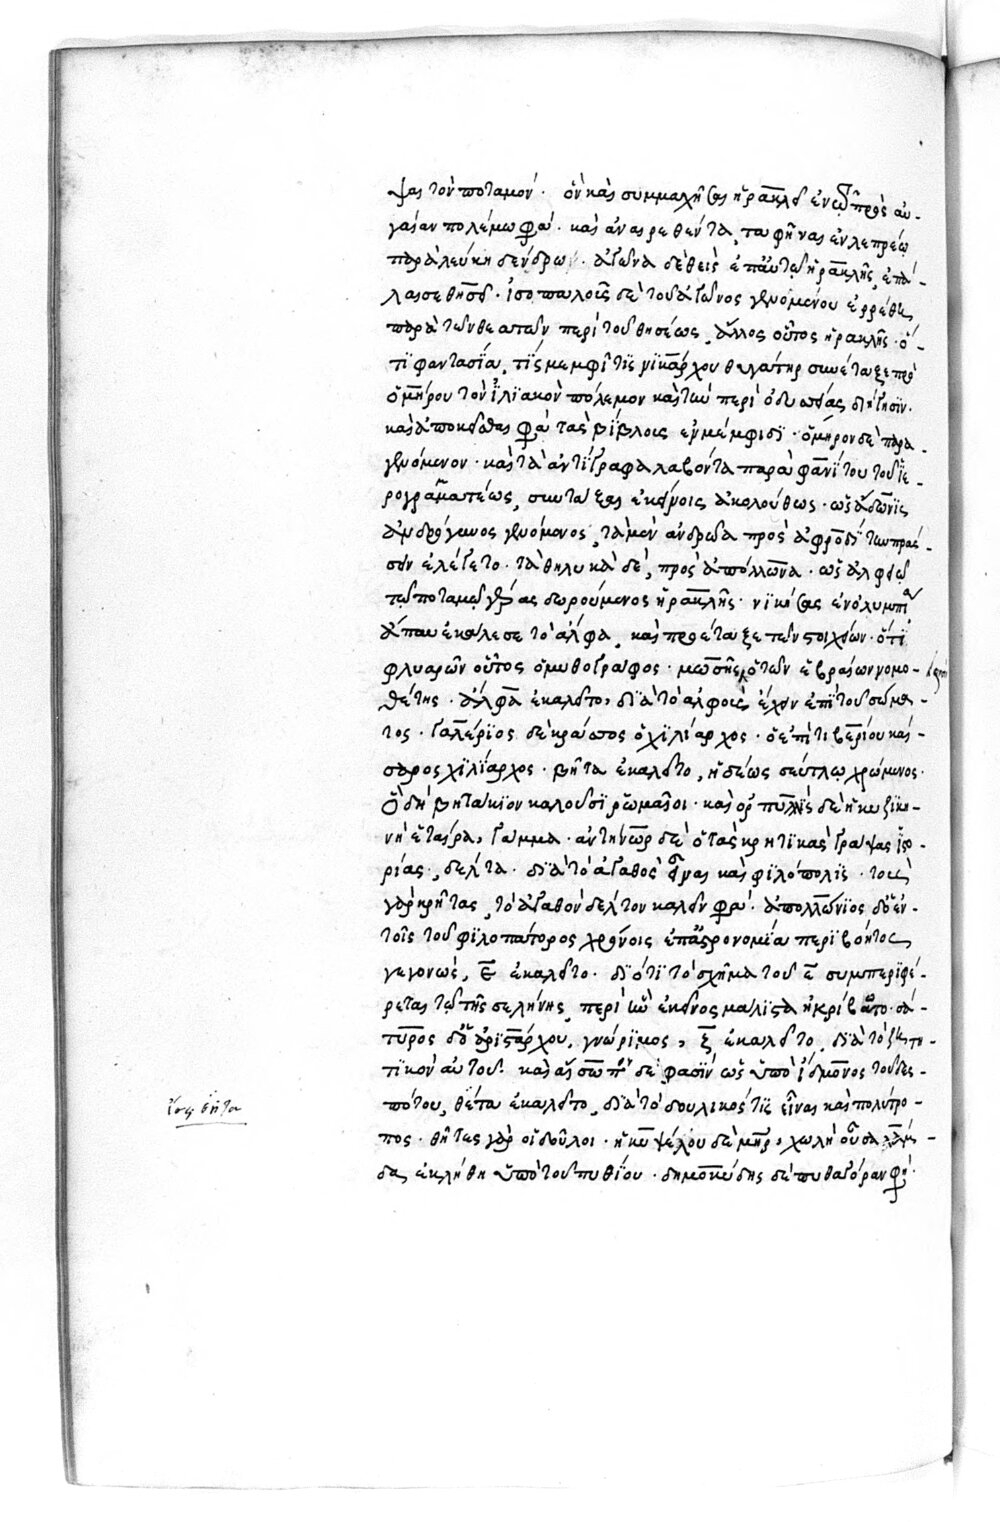 ψας τὸν ποταμόν· ὃν καὶ συμμαχῆσαι ἡρακλεῖ ἐν τῷ πρὸς αὐ-
γείαν πολέμω φασί· καὶ ἀναιρεθέντα, ταφῆναι ἐν λεπρέω
παρὰ λεύκη δένδρω· ἀγῶνα δὲ θεὶς ἐπ' αὐτῶ ἡρακλῆς, ἐπά-
λαισε θησεῖ· ἰσοπαλοῦς δὲ τοῦ ἀγῶνος γενομένου ἐρρέθη
παρὰ τῶν θεατῶν περὶ τοῦ θησέως, ἄλλος οὗτος ἡρακλῆς· ὅ-
τι φαντασία, τὶς μεμφῖτις νικάρχου θυγάτηρ συνέταξε πρὸ
ὁμήρου τὸν ἰλιακὸν πόλεμον καὶ τὴν περὶ ὀδυσσείας διήγησιν·
καὶ ἀποκεῖσθαι φασὶ τὰς βίβλους ἐν μέμφιδι· ὅμηρον δὲ παρα-
γενόμενον· καὶ τὰ ἀντίγραφα λαβόντα παρὰ φανίτου τοῦ ἱε-
ρογραμματέως, συντάξαι ἐκείνοις ἀκολούθως· ὡς ἄδωνις
ἀνδρόγυνος γενόμενος, τὰ μὲν ἀνδρεῖα πρὸς ἀφροδίτην πράσ-
σειν ἐλέγετο· τὰ θηλυκὰ δέ, πρὸς ἀπόλλωνα· ὡς ἀλφειῶ
τῶ ποταμῶ γέρας δωρούμενος ἡρακλῆς· νικήσας ἐν ὀλυμπία
ἀπ' αὐτοῦ ἐκάλεσε τὸ ἄλφα, καὶ προέταξε τῶν στοιχείων· ὅτι
φλυαρῶν οὗτος ὁ μυθογράφος· μωσῆς ὁ τῶν ἑβραίων νομο-
θέτης· ἄλφα ἐκαλεῖτο, διὰ τὸ ἀλφοὺς ἔχειν ἐπὶ τοῦ σώμα-
τος· γαλέριος δὲ κράσσος ὁ χιλίαρχος· ὁ ἐπὶ τιβερίου καί-
σαρος χιλίαρχος· βῆτα ἐκαλεῖτο, ἡδέως σεύτλω χρώμενος·
ὃ δὴ βητάκιον καλοῦσι ῥωμαῖοι· καὶ ὀρ πυλλὶς δὲ ἡ κυζικη-
νὴ ἑταίρα, γάμμα· ἀντήνωρ δὲ ὁ τὰς κρητικὰς γράψας ἱστο-
ρίας, δέλτα· διὰ τὸ ἀγαθὸς εἶναι καὶ φιλόπολις· τοὺς
γὰρ κρῆτας, τὸ ἀγαθὸν δέλτον καλεῖν φασί· ἀπολλώνιος δ' ὁ ἐν
τοῖς τοῦ φιλοπάτορος χρόνοις ἐπ' ἀστρονομία περιβόητος
γεγονώς, ε ἐκαλεῖτο· διότι τὸ σχῆμα τοῦ ε συμπεριφέ-
ρεται τῶ τῆς σελήνης, περὶ ἣν ἐκεῖνος μάλιστα ἠκρίβωτο· σά-
τυρος δ' ὁ ἀριστάρχου, γνώριμος, ξ ἐκαλεῖτο, διὰ τὸ ζητη-
τικὸν αὐτοῦ· καὶ αἴσωπον δέ φασιν ὡς ὑπὸ ἴδμονος τοῦ δεσ-
πότου, θέτα ἐκαλεῖτο, διὰ τὸ δουλικός τις εἶναι καὶ πολύτρο-
πος· θῆτες γὰρ οἱ δοῦλοι· ἡ κυψέλου δὲ μήτηρ, χωλὴ οὖσα
δα, ἐκλήθη ὑπὸ τοῦ πυθίου· δημοκύδης δὲ πυθαγόραν φη·
ἴσως θῆτα